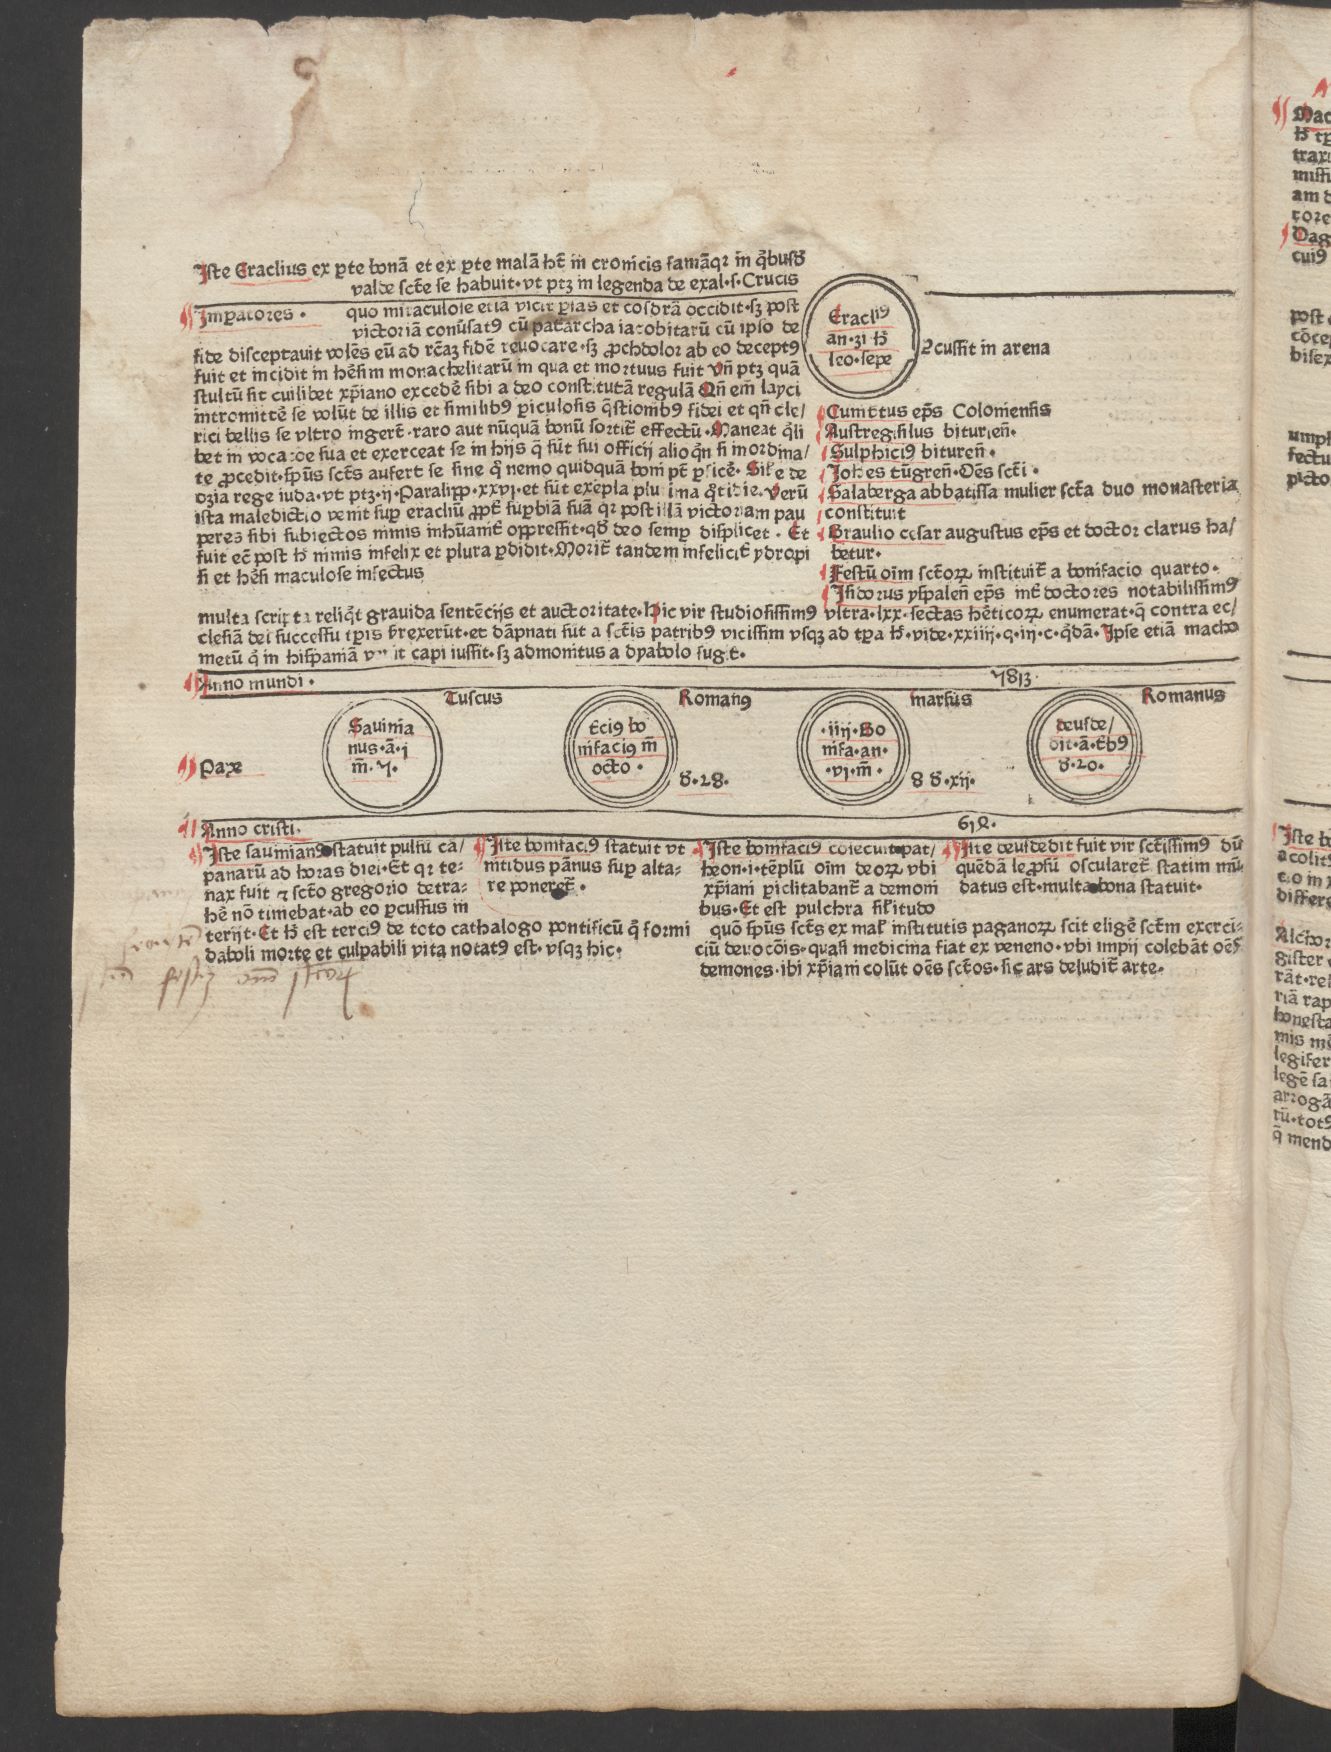 Iste Eraclius ex ꝑte bonā et ex ꝑte malā hꝫ̄ in cronicis famā qꝛ in q̇busdā
valde scē̄ se habuit· vt ptꝫ in legenda de exal·s·Crucis
Imꝑatores · quo miraculose etiā vicit ꝑsas et cosdrā occidit·sꝫ post
victoriā conūsatꝰ cū pat̄archa iacobitarū cū ipso de
fide disceptauit volēs eū ad rēaꝫ fidē reuocare·sꝫ ꝓchdolor ab eo deceptꝰ
fuit et incidit in hēsim monachelitarū in qua et mortuus fuit Vn̄ ptꝫ quā
stultū sit cuilibet xp̄iano excedē sibi a deo constitutā regulā Qn̄ em̄ layci
intromittē se volūt de illis et similibꝰ ꝑiculosis q̄stionibꝰ fidei et qn̄ cle/
rici bellis se vltro ingerēt·raro aut nūquā bonū sortit̄ effectū·Maneat q̇li
bet in vocacōe sua et exerceat se in hijs q̄ sūt sui officij alioq̇n si inordina/
te ꝓcedit·sp̄us scts̄ aufert se sine q̊ nemo quidquā boni pt̄ ꝑficē· Sił e de
ozia rege iuda·vt ptꝫ·ij·Paralipp̄·xxvj·et sūt exēpla plurima q̊tidie·Verū
ista maledictio venit suꝑ eracliū ꝓpt̄ suꝑbiā suā qꝛ post illā victoriam pau
peres sibi subiectos nimis inhūanit̄ oppressit·qd̄ deo semꝑ displicet · Et
fuit ec̄ post hͦ nimis infelix et plura ꝑdidit·Morit̄ tandem infelicit̄ ydropi
si et hēsi maculose infectus
Eracliꝰ
an·31 hͦ
leo·sepe
ꝑcussit in arena
Cunittus ep̄s Coloniensis
Austregisilus biturien̄·
Sulphiciꝰ bituren̄·
Joh̄es tūgren̄·Oēs scti ·
Salaberga abbatissa mulier scta duo monasteria
constituit
Braulio cesar augustus ep̄s et doctor clarus ha/
betur·
Festū oīm sctoꝝ instituit̄ a bonifacio quarto·
Isidorus yspalen̄ ep̄s int̄ doctores notabilissimꝰ
multa scripta reliq̇t grauida sentēcijs et auctoritate·Hic vir studiosissimꝰ vltra·lxx·sectas hēticoꝝ enumerat·q̄ contra ec/
clesiā dei successu tꝑis srexerūt·et dāpnati sūt a sctis patribꝰ vicissim vsqꝫ ad tꝑa hͦ·vide·xxiiij·q·iij·c·q̇dā·Ipse etiā macho
metū q̇ in hispaniā venit capi iussit·sꝫ admonitus a dyabolo fugit·
Anno mundi · 5813·
Tuscus Romanꝰ marsus Romanus
Pape
Sauinia
nus·ā·j
m̄·5·
Terciꝰ bo
nifaciꝰ m̄
octo ·
d̄·28·
·iiij·Bo
nifa·an·
·vj·m̄·
8 d̄·xij·
deusde/
dit·ā·tribꝰ
d̄·20·
Anno cristi· 614·
Iste sauinianꝰ statuit pulsū cā/
panarū ad horas diei·Et qꝛ te-
nax fuit ⁊ scto gregorio detra-
hē nō timebat·ab eo ꝑcussus in
terijt·Et hͦ est terciꝰ de toto cathalogo pontificū q̇ formi
daboli morte et culpabili vita notatꝰ est·vsqꝫ hic·
Iste bonifaciꝰ statuit vt
nitidus pānus suꝑ alta-
re poneret̄·
Iste bonifaciꝰ cōsecuit pat/
heon·i·tēplū oīm deoꝝ vbi
xp̄iani ꝑiclitabant̄ a demoni
bus·Et est pulchra silitudo
quō sp̄us scts̄ ex mał institutis paganoꝝ scit eligē sctm exerci-
ciū deuocōis·quasi medicina fiat ex veneno·vbi impij colebāt oēs
demones·ibi xp̄iani colūt oēs sctos·sic ars deludit̄ arte·
Iste deusdedit fuit vir sctissimꝰ dū
quēdā leꝓsū oscularet̄ statim mū-
datus est·multa bona statuit·